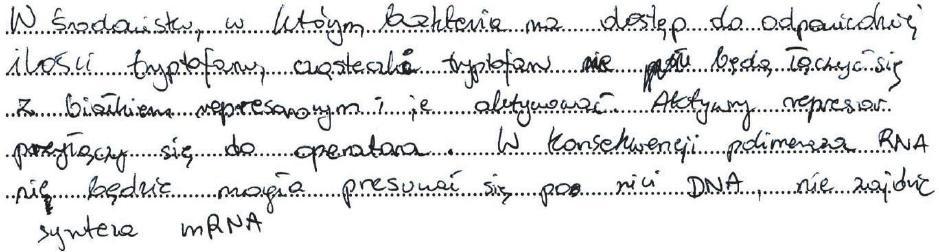 W środowisku, w którym bakteria ma dostęp do odpowiedniej
ilości tryptofanu, cząsteczki tryptofanu będą łączyć się
z białkiem represorowym i je aktywować. Aktywny represor
przyłączy się do operatora. W konsekwencji polimeraza RNA
nie będzie mogła presunąć się po nici DNA, nie zajdzie
synteza mRNA